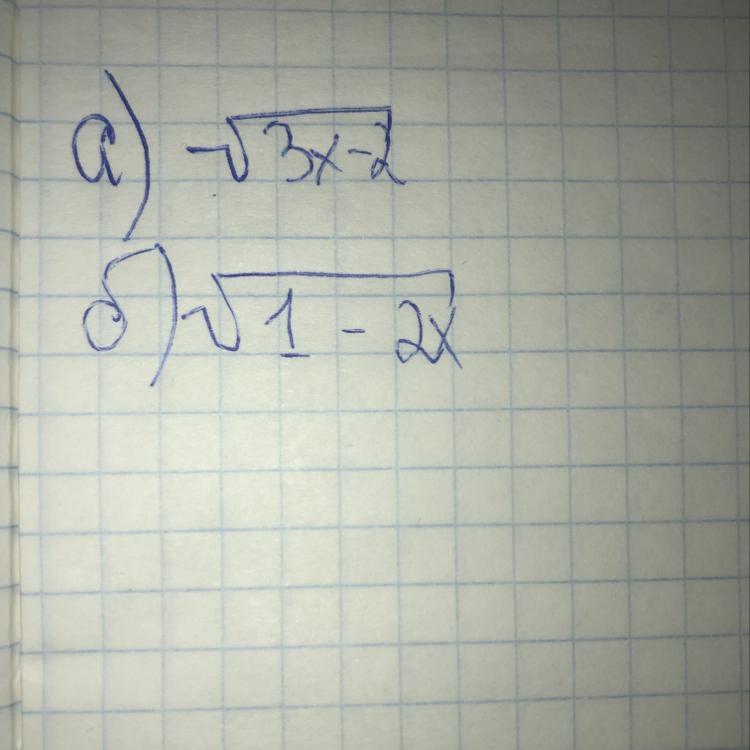 а) √3x-2
б) √1 - 2x